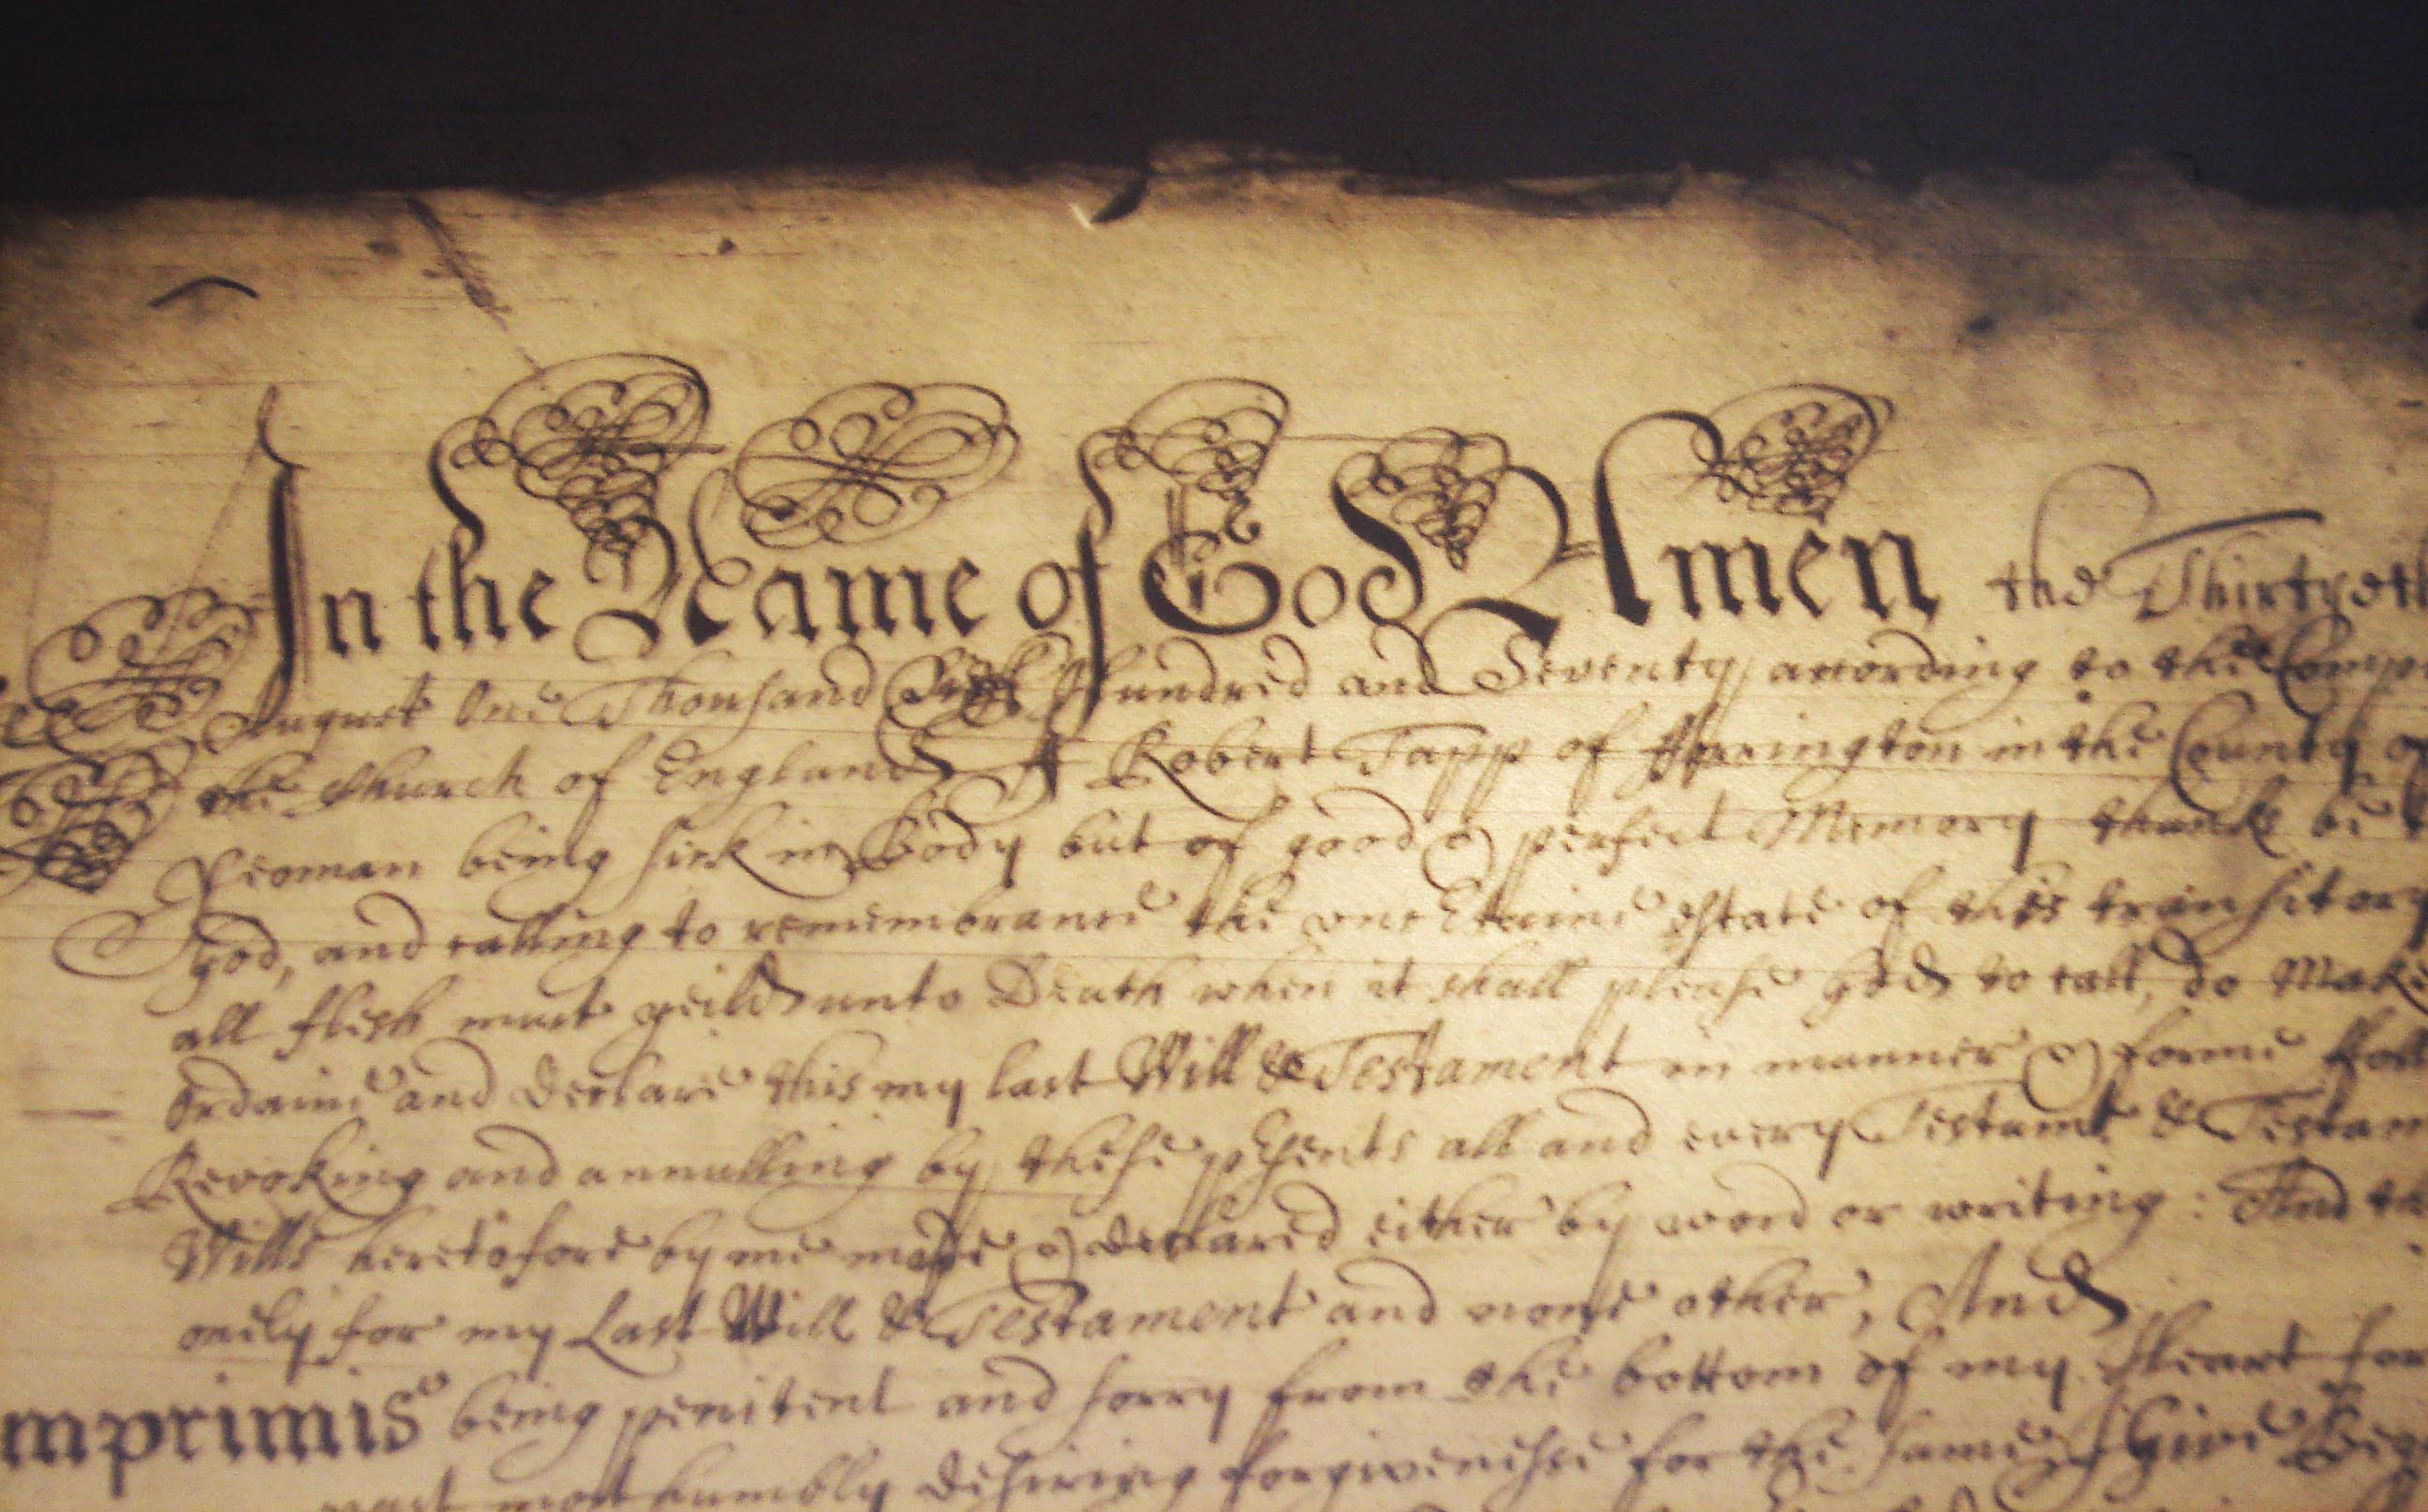 In the Name of God Amen the Thirtyeth
August One Thousand Six Hundred and Seventy, according to the Comp
the Church of England I Robert Tapp of in the County of
Yeoman being sick in Body but of good & perfect Memory thanks be
god, and calling to remembrance the estate of this transitory
all flesh must yeild unto Death when it shall please god to call, do Make
Ordaine and declare this my last Will & Testament in manner & forme foll
Revoking and annulling by these psents all and every Testamt & Testam
Wills heretofore by me made & declared either by word or writing: And th
onely for my Last Will & Testament and none other, And
mprimis being penitent and sorry from the bottom of my Heart for
most humbly desiring forgivenesse for the same I Give